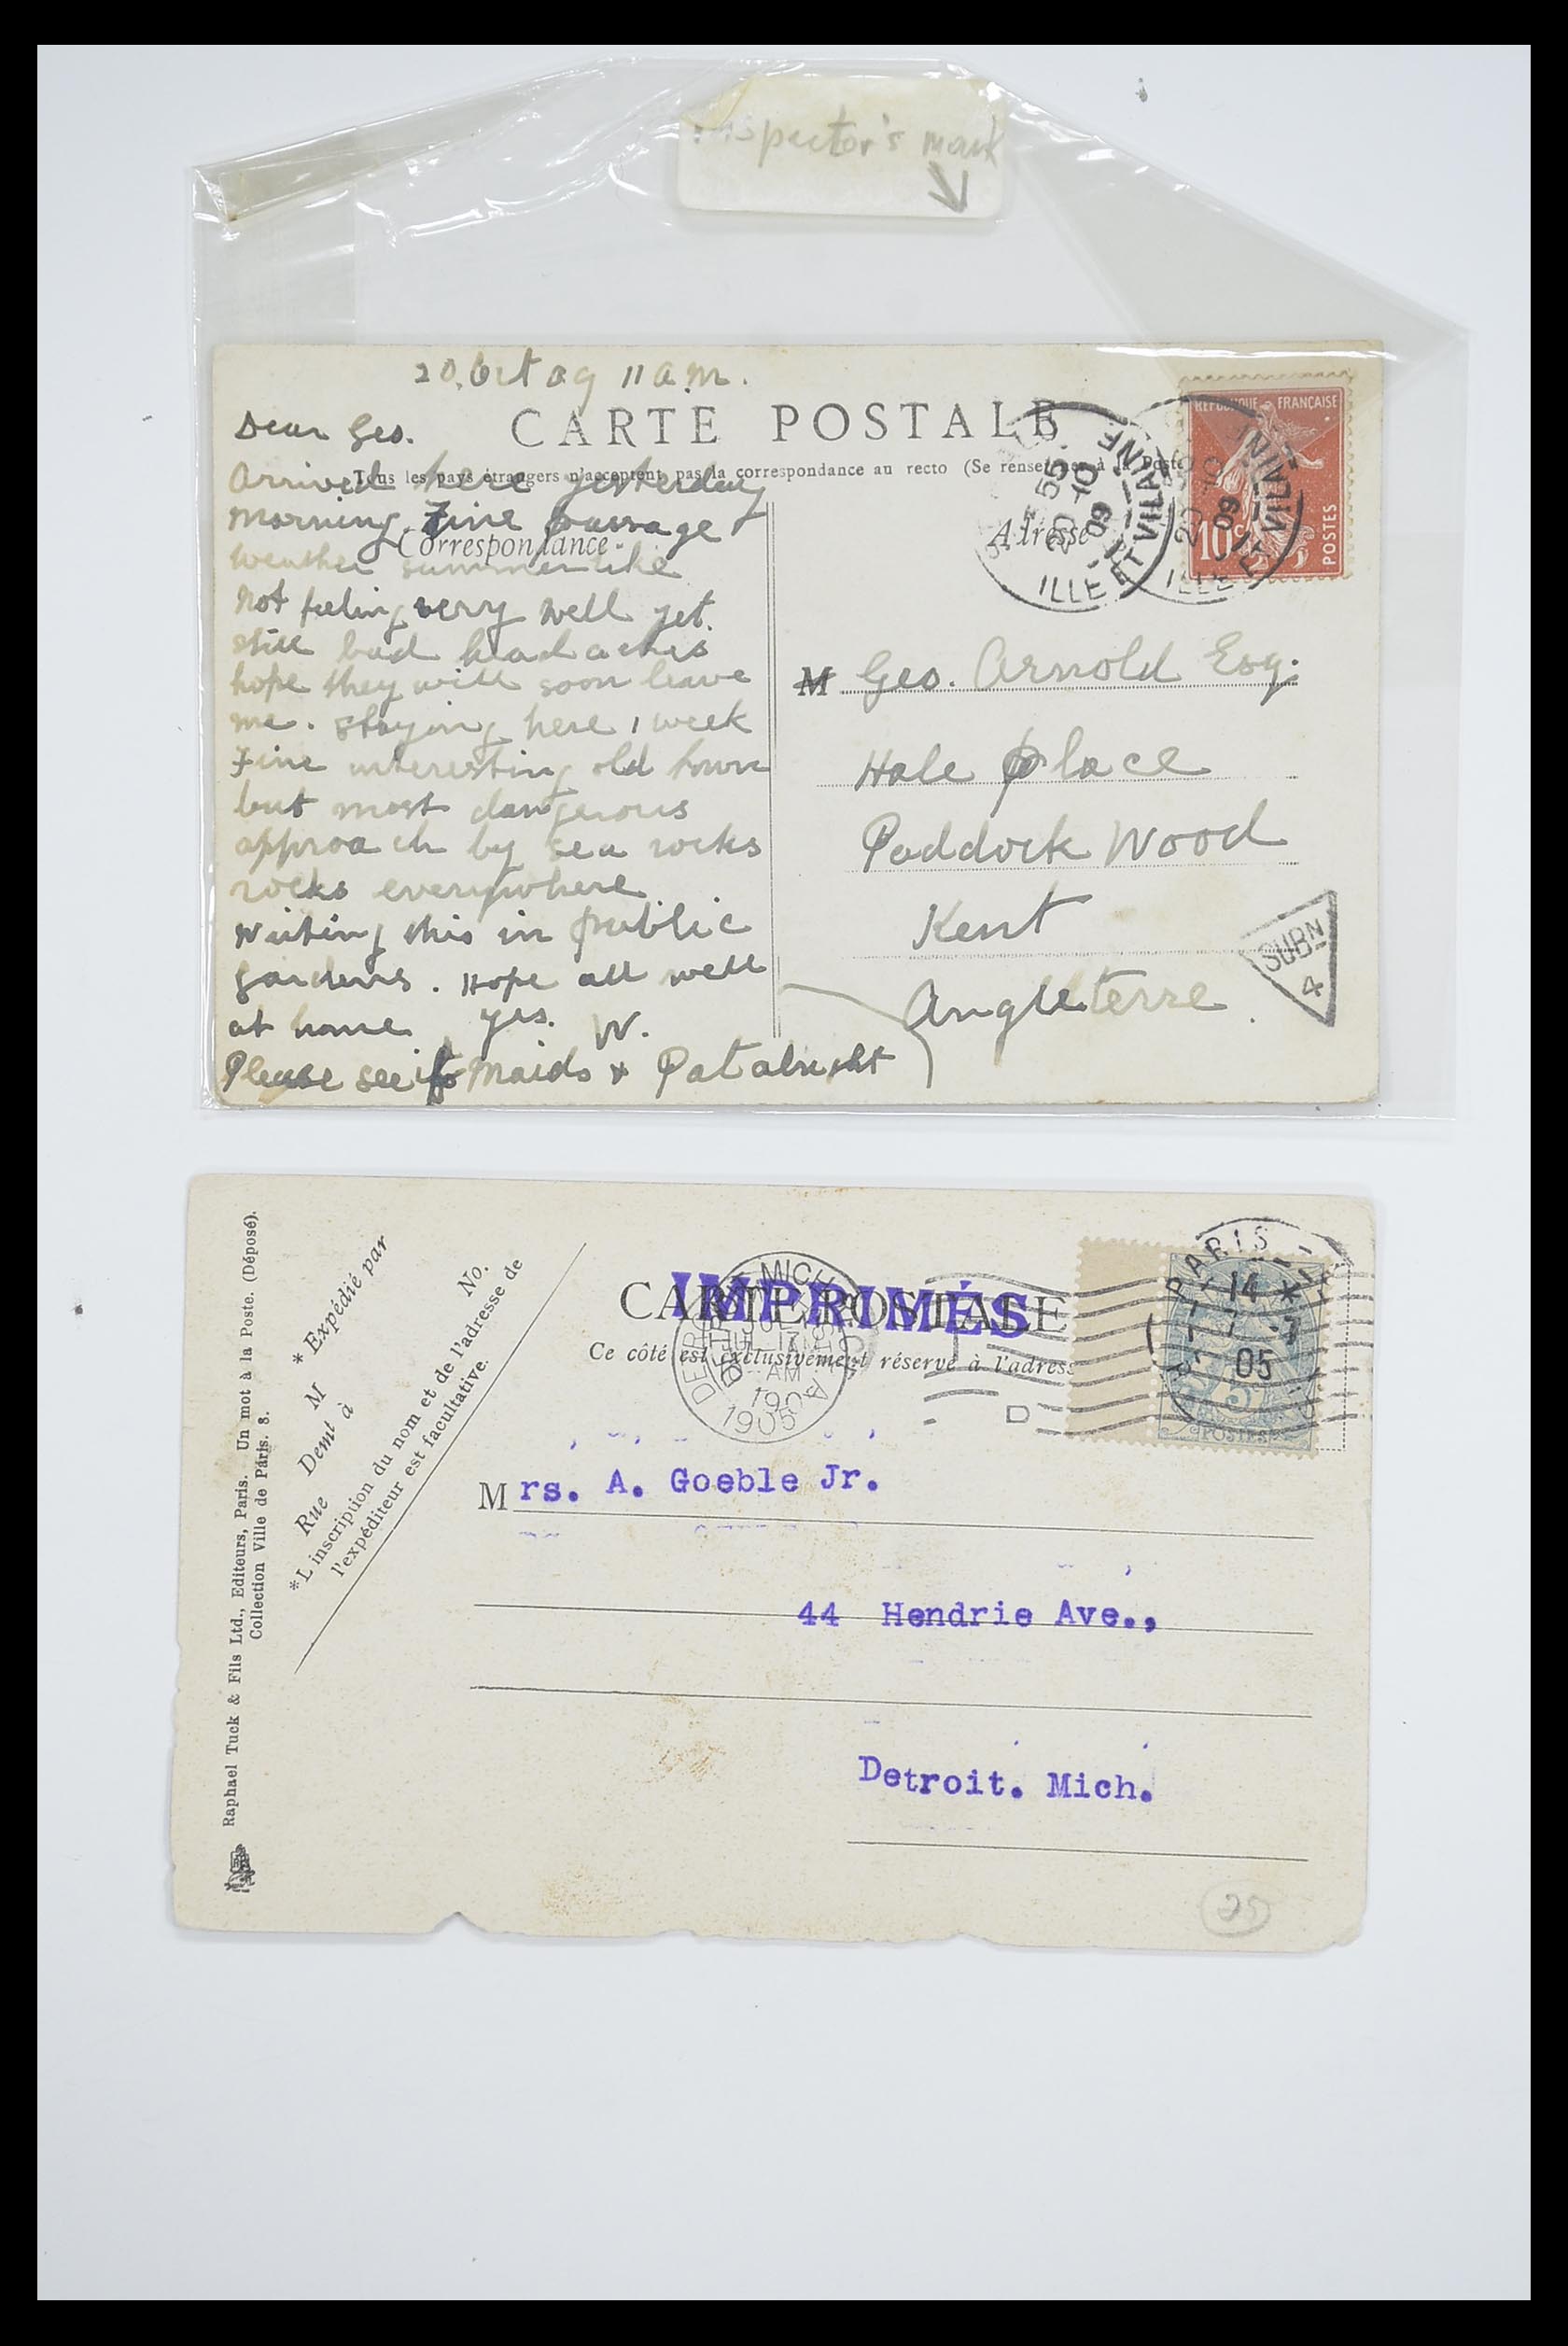 Inspector's mark
20. Oct 09 11 a.m.
Dear Geo.
CARTE POSTALE
Tous les pays étrangers n'acceptent pas la correspondance au recto (Se renseigner à la Poste
Arrived here yesterday
morning. Fine passage
Correspondance
weather summerlike
Not feeling very well yet.
still bad headaches
hope they will soon leave
me. Staying here 1 week
Fine interesting old town
but most dangerous
approach by sea rocks
rocks everywhere
Writing this in public
gardens. Hope all well
at home yrs. W.
Please see to Maids & Pat alright
Adresse
REPUBLIQUE FRANÇAISE
10c
POSTES
20 -10
09
ILLE ET VILAINE
20 -10
09
ILLE ET VILAINE
M Geo. Arnold Esq.
Hale Place
Paddock Wood
Kent
Angleterre
SUBN
4
Raphael Tuck & Fils Ltd., Editeurs, Paris. Un mot à la Poste. (Déposé).
Collection Ville de Paris. 8.
* Expédié par
M
Demt à
Rue No.
*L'inscription du nom et de l'adresse de
l'expéditeur est facultative.
CARTE POSTALE
IMPRIMÉS
Ce côté est exclusivement réservé à l'adresse
MICH
JUL
17
AM
1905
D
PARIS
14 *
7
05
5
POSTES
Mrs. A. Goeble Jr.
44 Hendrie Ave.,
Detroit. Mich.
25